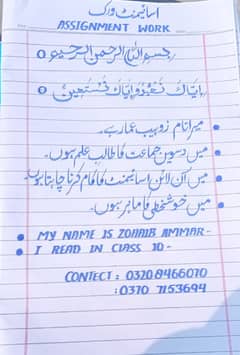 اسائیمنٹ ورک
ASSIGNMENT WORK
بسم اللہ الرحمن الرحیم
ایاک نعبد وایاک نستعین
میرا نام زوہیب عمار ہے۔
میں دسویں جماعت کا طالب علم ہوں۔
میں آن لائن اسائیمنٹ کا کام کرنا چاہتا ہوں۔
میں خوشخطی کا ماہر ہوں۔
MY NAME IS ZOHAIB AMMAR -
I READ IN CLASS 10 -
CONTECT : 0320 8466070
: 0370 7153694